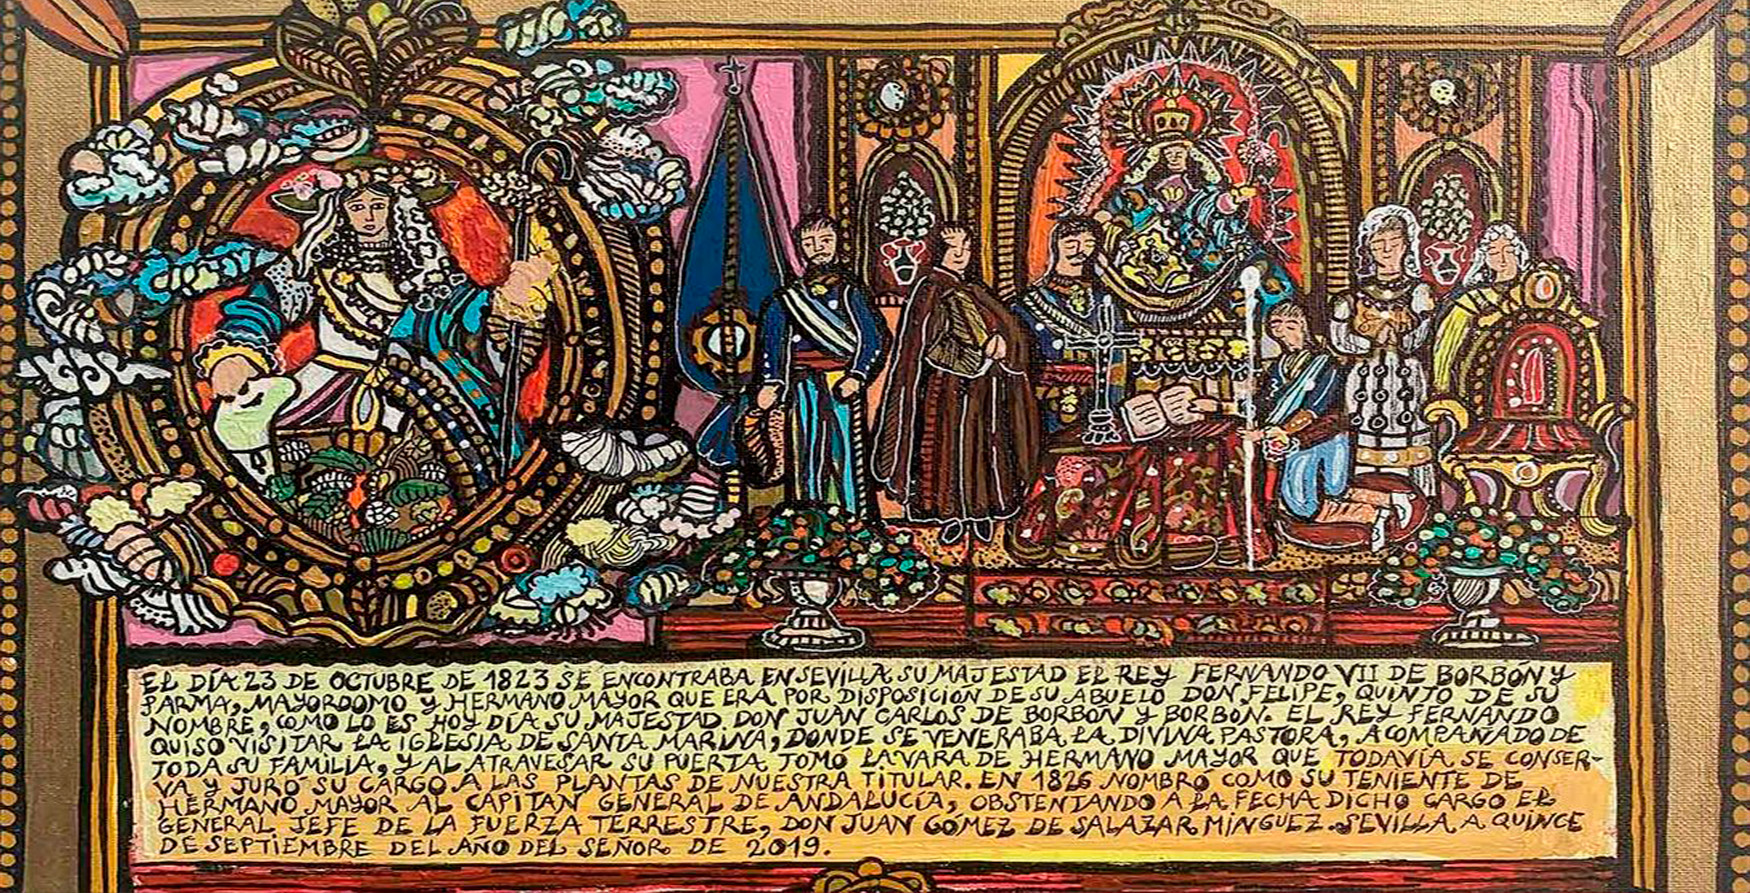 EL DÍA 23 DE OCTUBRE DE 1823 SE ENCONTRABA EN SEVILLA SU MAJESTAD EL REY FERNANDO VII DE BORBÓN Y
PARMA, MAYORDOMO Y HERMANO MAYOR QUE ERA POR DISPOSICIÓN DE SU ABUELO DON FELIPE, QUINTO DE SU
NOMBRE, COMO LO ES HOY DÍA SU MAJESTAD DON JUAN CARLOS DE BORBÓN Y BORBÓN. EL REY FERNANDO
QUISO VISITAR LA IGLESIA DE SANTA MARINA, DONDE SE VENERABA LA DIVINA PASTORA, ACOMPAÑADO DE
TODA SU FAMILIA, Y AL ATRAVESAR SU PUERTA TOMÓ LA VARA DE HERMANO MAYOR QUE TODAVÍA SE CONSER-
VA Y JURÓ SU CARGO A LAS PLANTAS DE NUESTRA TITULAR. EN 1826 NOMBRÓ COMO SU TENIENTE DE
HERMANO MAYOR AL CAPITAN GENERAL DE ANDALUCÍA, OBSTENTANDO A LA FECHA DICHO CARGO EL
GENERAL JEFE DE LA FUERZA TERRESTRE, DON JUAN GÓMEZ DE SALAZAR MÍNGUEZ. SEVILLA A QUINCE
DE SEPTIEMBRE DEL AÑO DEL SEÑOR DE 2019.